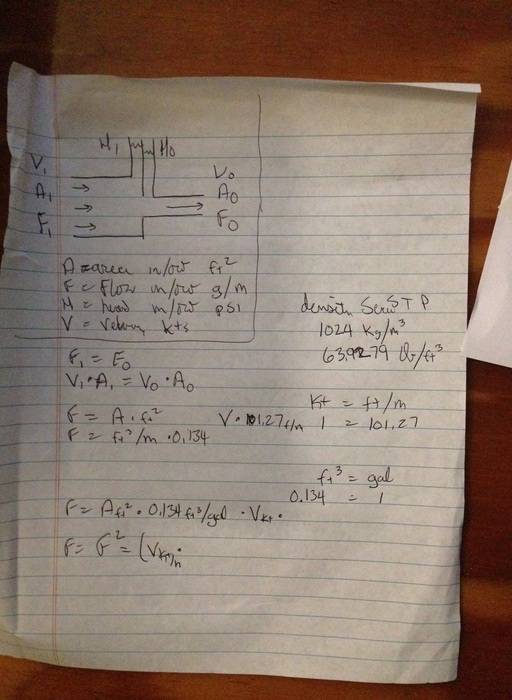 H₁ H₀
V₁ V₀
A₁ → A₀
→ →
F₁ → F₀
A = area in/out ft²
F = Flow in/out g/m
H = head in/out psi
V = velocity kts
density STP
1024 Kg/m³
63.9279 lb/ft³
F₁ = F₀
V₁·A₁ = V₀·A₀
Kt = ft/m
1 = 101.27
F = A·ft² V·101.27 ft/m
F = ft³/m ·0.134
ft³ = gal
0.134 = 1
F = A ft² · 0.134 ft³/gal · V kt ·
F = F² = (V kt)